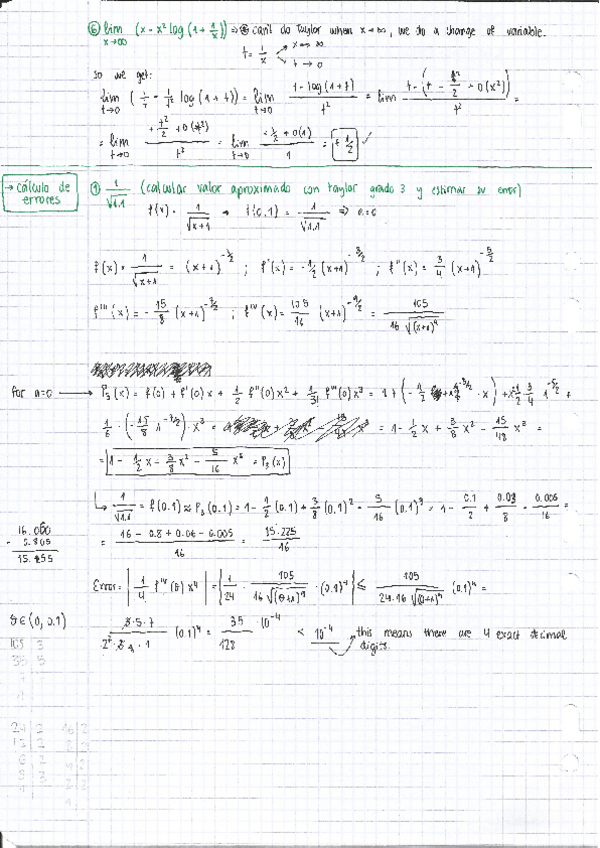 ⑥ lim x→∞ (x - x² log(1 + 1/x)) ⇒ can't do Taylor when x→∞, we do a change of variable.
t = 1/x x→∞
t→0
so we get:
lim t→0 (1/t - 1/t² log(1+t)) = lim t→0 (t - log(1+t))/t² = lim (t - (t - t²/2 + o(x²)))/t² =
= lim t→0 (+ t²/2 + o(t²))/t² = lim t→0 (1/2 + o(1))/1 = + 1/2 ✓
→ cálculo de errores
① 1/√1.1 (calcular valor aproximado con taylor grado 3 y estimar su error)
f(x) = 1/√(x+1) → f(0.1) = 1/√1.1 ⇒ a=0
f(x) = 1/√(x+1) = (x+1)^(-1/2) ; f'(x) = -1/2 (x+1)^(-3/2) ; f''(x) = 3/4 (x+1)^(-5/2)
f'''(x) = - 15/8 (x+1)^(-7/2) ; f^IV(x) = 105/16 (x+1)^(-9/2) = 105/(16 √(x+1)⁹)
For a=0 → P₃(x) = f(0) + f'(0)x + 1/2 f''(0)x² + 1/3! f'''(0)x³ = 1 + (-1/2 · 1^(-3/2) · x) + x² 1/2 3/4 1^(-5/2) +
1/6 · (-15/8 1^(-7/2)) · x³ = 1 - 1/2 x + 3/8 x² - 15/48 x³ =
= 1 - 1/2 x - 3/8 x² - 5/16 x³ = P₃(x)
↳ 1/√1.1 = f(0.1) ≈ P₃(0.1) = 1 - 1/2 (0.1) + 3/8 (0.1)² - 5/16 (0.1)³ = 1 - 0.1/2 + 0.03/8 - 0.005/16 =
= (16 - 0.8 + 0.06 - 0.005)/16 = 15.225/16
16.000
- 0.805
15.155
Error = | 1/4 f^IV(θ) x⁴ | = | 1/24 · 105/(16 √(θ+1)⁹) · (0.1)⁴ | ≤ 105/(24·16 √(0+1)⁹) (0.1)⁴ =
θ∈(0, 0.1)
(0.1)⁴ = 35/128 · 10⁻⁴ < 10⁻⁴ → this means there are 4 exact decimal
digits.
105 3
35 5
7